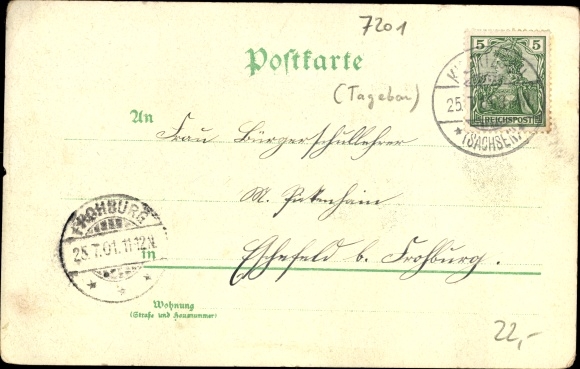 7201
Postkarte
5 5
REICHSPOST
25.
* (SACHSEN)
(Tagebau)
An
Frau Bürgerschullehrer
M. Pickenhain
in Eschefeld b. Frohburg.
FROHBURG
25.7.01.11-12N.
* * *
Wohnung
(Straße und Hausnummer)
22,-